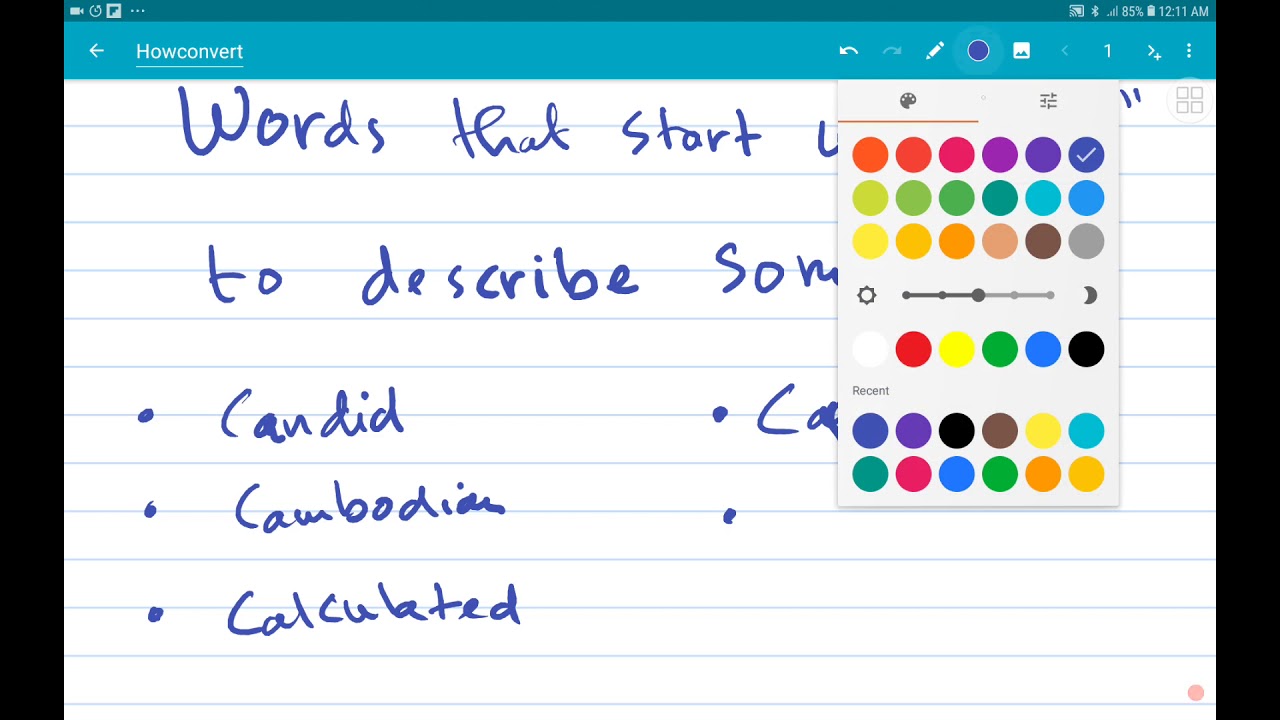 85% 12:11 AM
Howconvert
1
Words that start
"
to describe
Recent
• Candid •
• Cambodian •
• Calculated